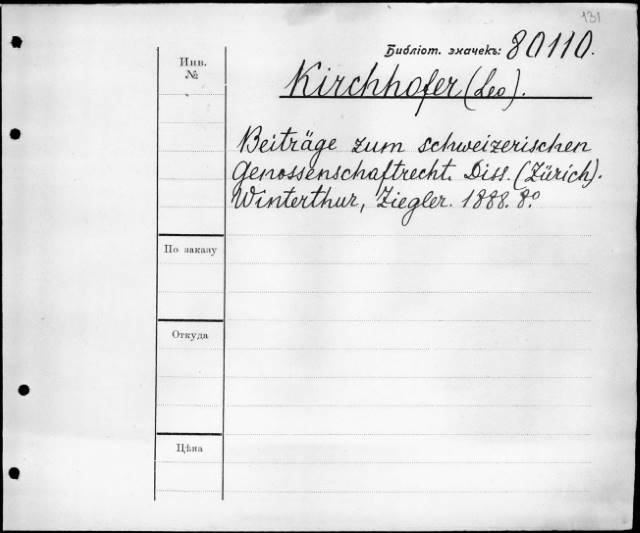 131
Библіот. значекъ: 80110.
Инв.
№
Kirchhofer (Leo).
Beiträge zum schweizerischen
Genossenschaftrecht. Diss. (Zürich).
Winterthur, Ziegler. 1888. 8.º
По заказу
Откуда
Цѣна